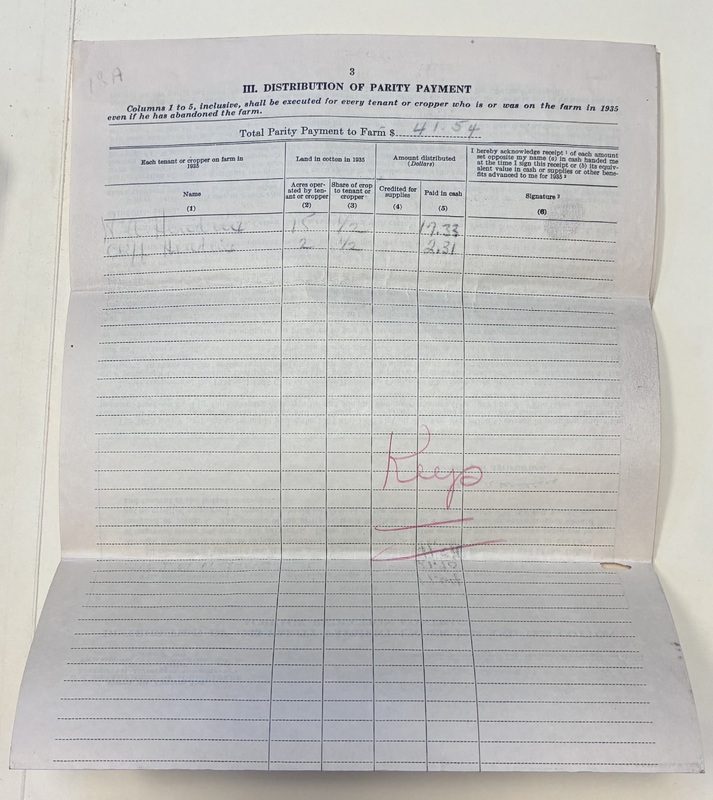 18A
3
III. DISTRIBUTION OF PARITY PAYMENT
Columns 1 to 5, inclusive, shall be executed for every tenant or cropper who is or was on the farm in 1935
even if he has abandoned the farm.
Total Parity Payment to Farm $ 41.54
Each tenant or cropper on farm in
1935
Land in cotton in 1935
Amount distributed
(Dollars)
I hereby acknowledge receipt ¹ of each amount
set opposite my name (a) in cash handed me
at the time I sign this receipt or (b) its equiv-
alent value in cash or supplies or other bene-
fits advanced to me for 1935 ²
Name
Acres oper-
ated by ten-
ant or cropper
Share of crop
to tenant or
cropper
Credited for
supplies
Paid in cash
Signature ³
(1)
(2)
(3)
(4)
(5)
(6)
15 1/2 17.33
2 1/2 2.31
Keep